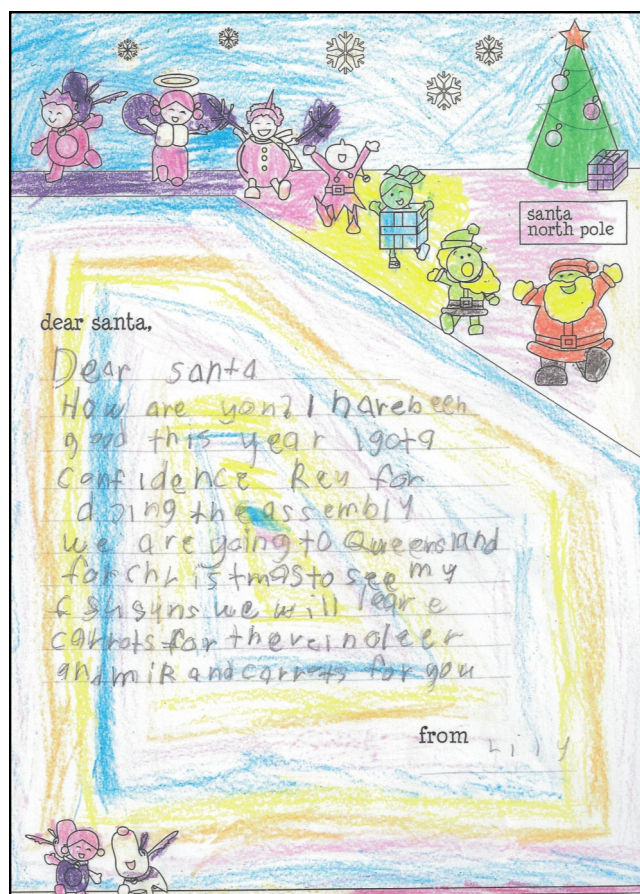 santa
north pole
dear santa,
Dear santa
How are you? I have been
good this year I got a
Confidence Key for
doing the assembly
we are going to Queensland
for Christmas to see my
csusyns we will leave
carrots for the reindeer
and milk and carrots for you
from Lilly